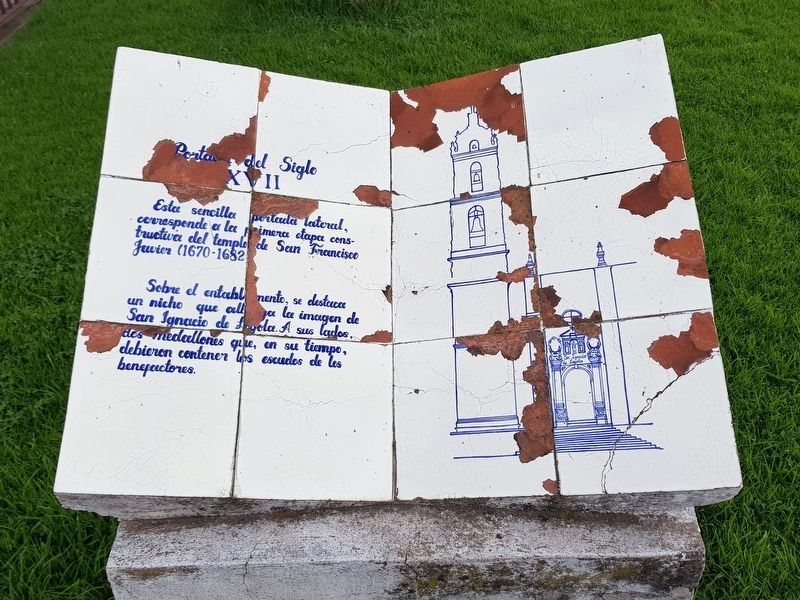 Portada del Siglo
XVII
Esta sencilla portada lateral,
corresponde a la primera etapa cons-
tructiva del templo de San Francisco
Javier (1670-1682
Sobre el entablamento, se destaca
un nicho que alberga la imagen de
San Ignacio de Loyola. A sus lados,
dos medallones que, en su tiempo,
debieron contener los escudos de los
benefactores.